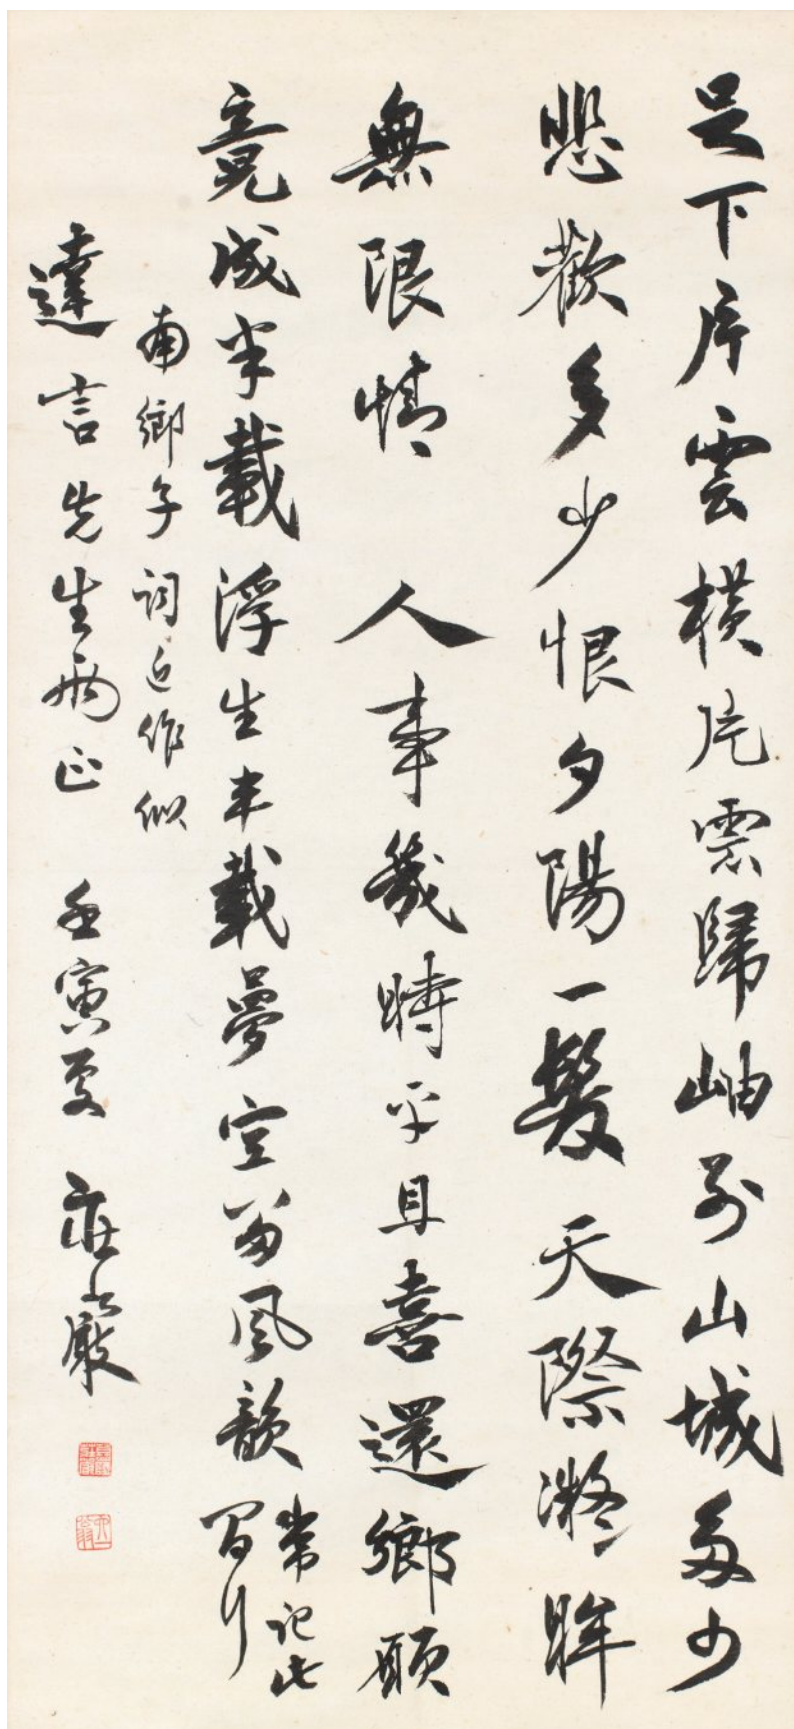 足下片雲橫片雲歸岫別山城多少
悲歡多少恨夕陽一髮天際凝眸
無限情 人事幾時平且喜還鄉願
竟成半載浮生半載夢空留風韻常記此
間行
南鄉子詞近作似
達言先生兩正 壬寅夏 莊嚴